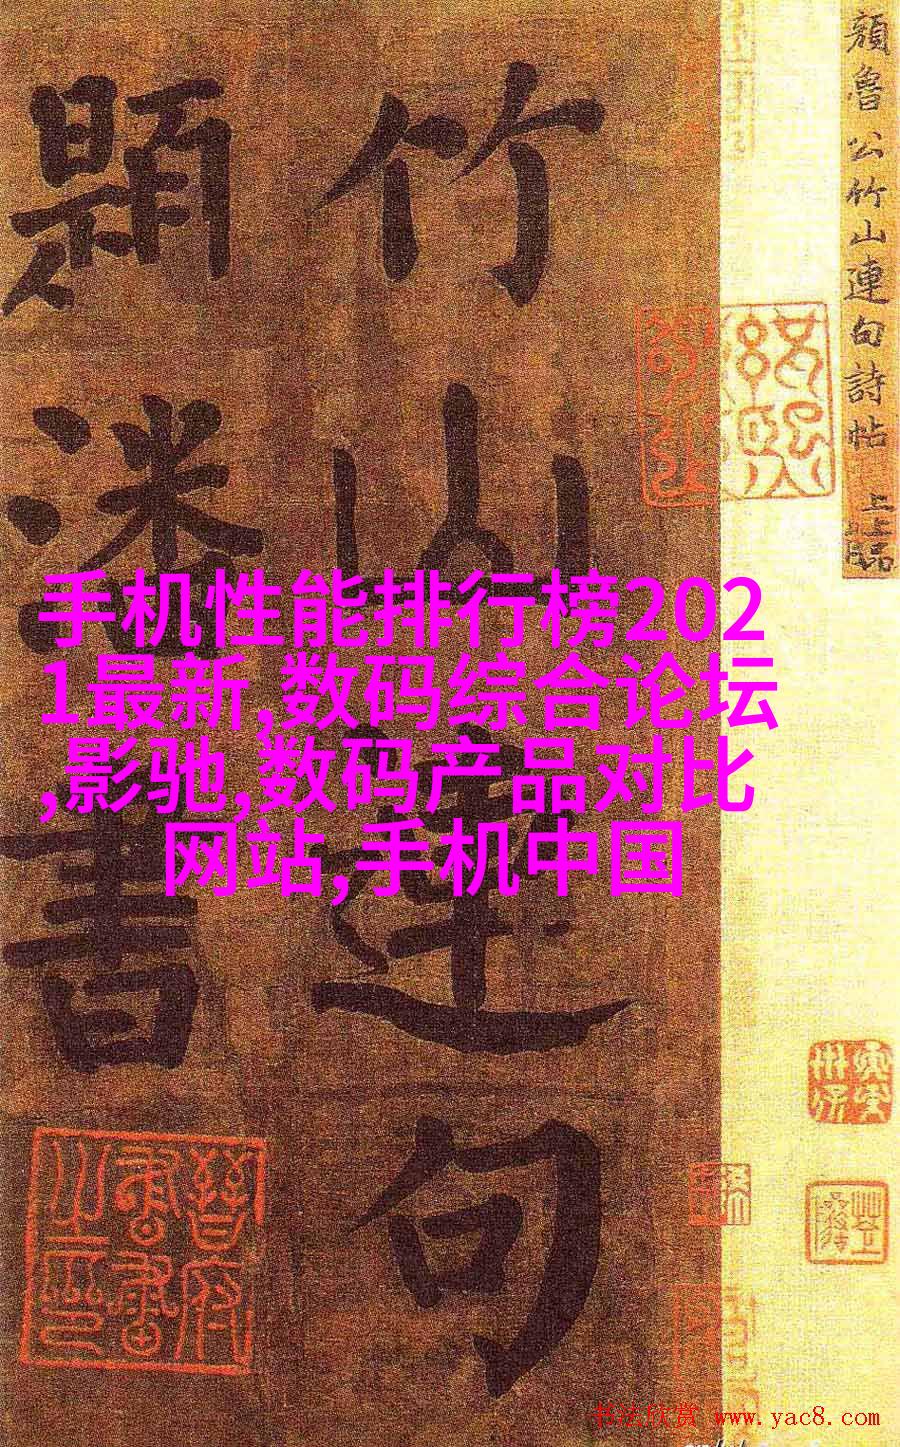 顔魯公竹山連句詩帖 上上品
竹山連句
題潘書
手机性能排行榜202
1最新,数码综合论坛
,影驰,数码产品对比
网站,手机中国
书法欣赏 www.yac8.com